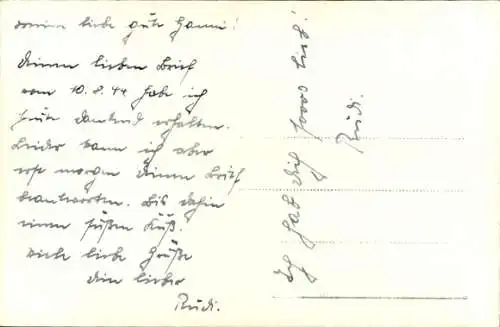 meine liebe gute Hanni!
Deinen lieben Brief
vom 10.8.44 habe ich
heute dankend erhalten.
Leider kann ich aber
erst morgen deinen Brief
beantworten. Bis dahin
einen süßen Kuß.
Viele liebe Grüße
dein lieber
Rudi.
Rudi